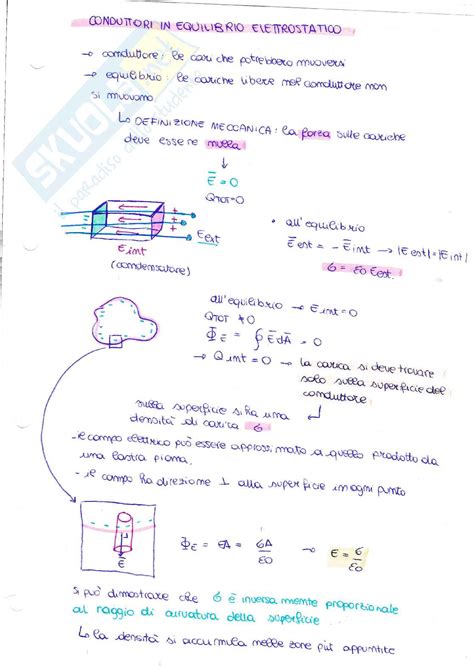 CONDUTTORI IN EQUILIBRIO ELETTROSTATICO
→ conduttore: le cariche potrebbero muoversi
→ equilibrio: le cariche libere nel conduttore non
si muovono
↳ DEFINIZIONE MECCANICA: la forza sulle cariche
deve essere nulla
↓
E̅ = 0
QTOT=0
Eext
Eint
(condensatore)
• all'equilibrio
E̅ext = - E̅int → |Eext|=|Eint|
σ = ε0 Eext.
all'equilibrio → Eint = 0
QTOT ≠0
Φ̅E = ∮ E̅dA̅ = 0
→ Qint = 0 → la carica si deve trovare
solo sulla superficie del
conduttore
sulla superficie si ha una
densità di carica σ
- il campo elettrico può essere approssimato a quello prodotto da
una lastra piana.
- il campo ha direzione ⊥ alla superficie in ogni punto
E̅
Φ̅E = EA = σA/ε0 → E = σ/ε0
si può dimostrare che σ è inversamente proporzionale
al raggio di curvatura della superficie
↳ la densità si accumula nelle zone più appuntite
SKUOLA.net
il paradiso dello studente